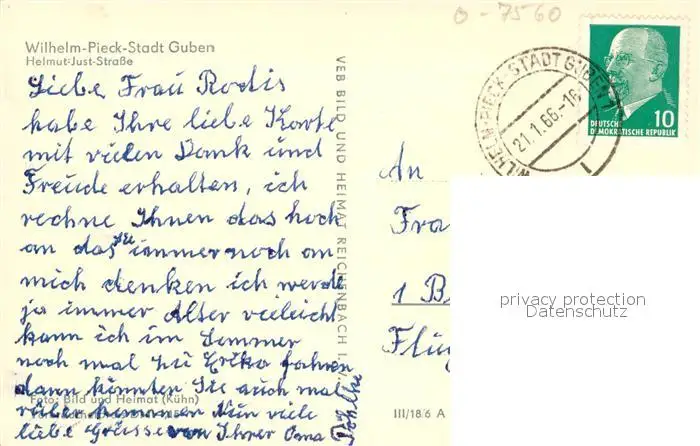 o - 7560
Wilhelm-Pieck-Stadt Guben
Helmut-Just-Straße
Liebe Frau Rodis
habe Ihre liebe Karte
mit vielen Dank und
Freude erhalten, ich
rechne Ihnen das hoch
an das Sie immer noch an
mich denken ich werde
ja immer Älter vieleicht
kann ich im Sommer
noch mal zu Erika fahren
dann könnten Sie auch mal
rüber kommen Nun viele
liebe Grüsse von Ihrer Oma
Foto: Bild und Heimat (Kühn)
VEB BILD UND HEIMAT REICHENBACH I.
WILHELM-PIECK-STADT GUBEN 1
21.1.66.-16
DEUTSCHE
DEMOKRATISCHE REPUBLIK
10
An
Fra
1 B
Flü
III/18/6 A
privacy protection
Datenschutz